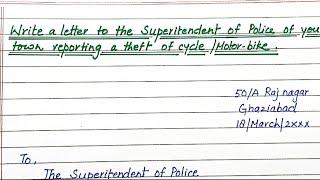 Write a letter to the Superitendent of Police of you
town reporting a theft of cycle /Motor-bike.
50/A Raj nagar
Ghaziabad
18/March/2xxx
To,
The Superitendent of Police